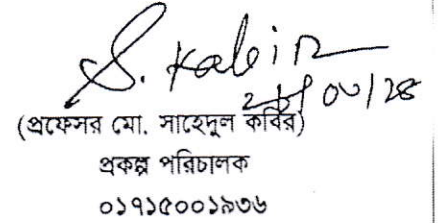 S. Kabir
(প্রফেসর মো. সাহেদুল কবির)
প্রকল্প পরিচালক
০১৭১৫০০১৯৩৬